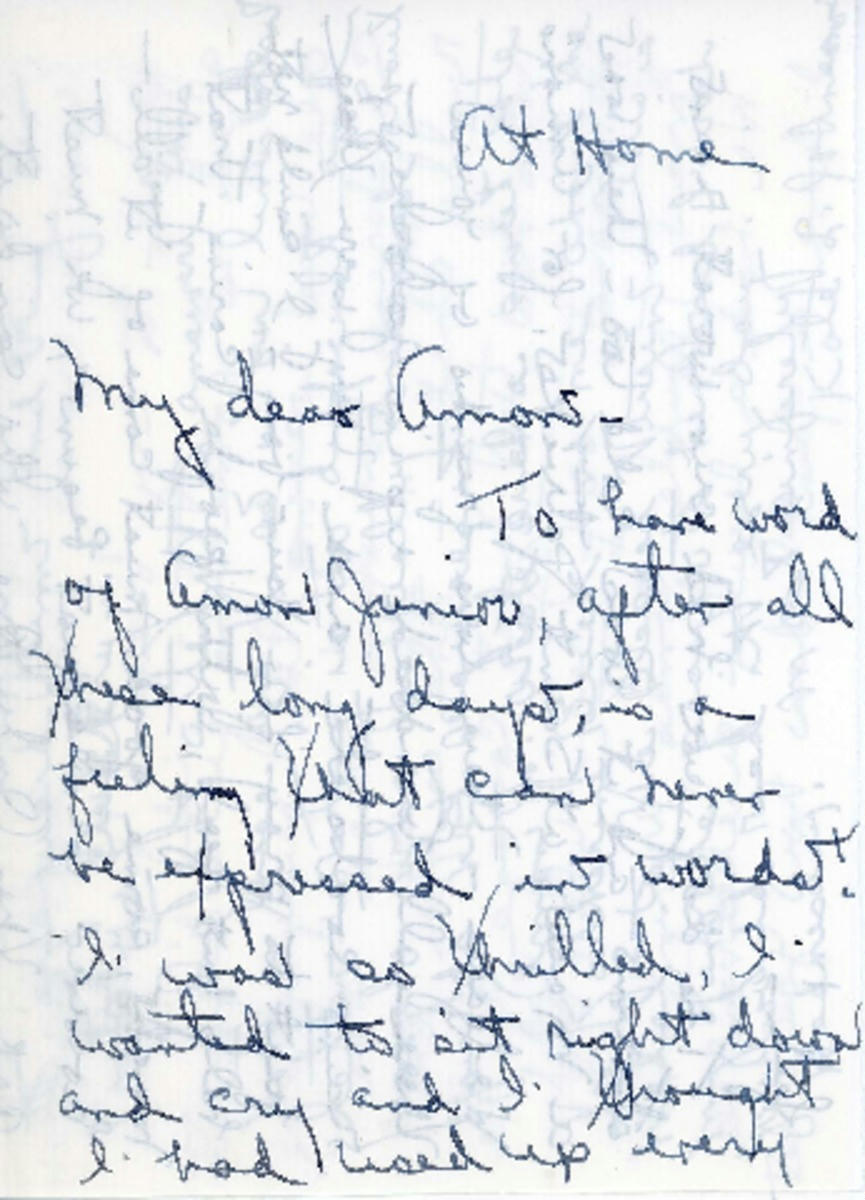 At Home
My dear Amon -
To have word
of Amon Junior, after all
these long days, is a
feeling that can never
be expressed in words!
I was so thrilled, I
wanted to sit right down
and cry and I thought
I had used up every